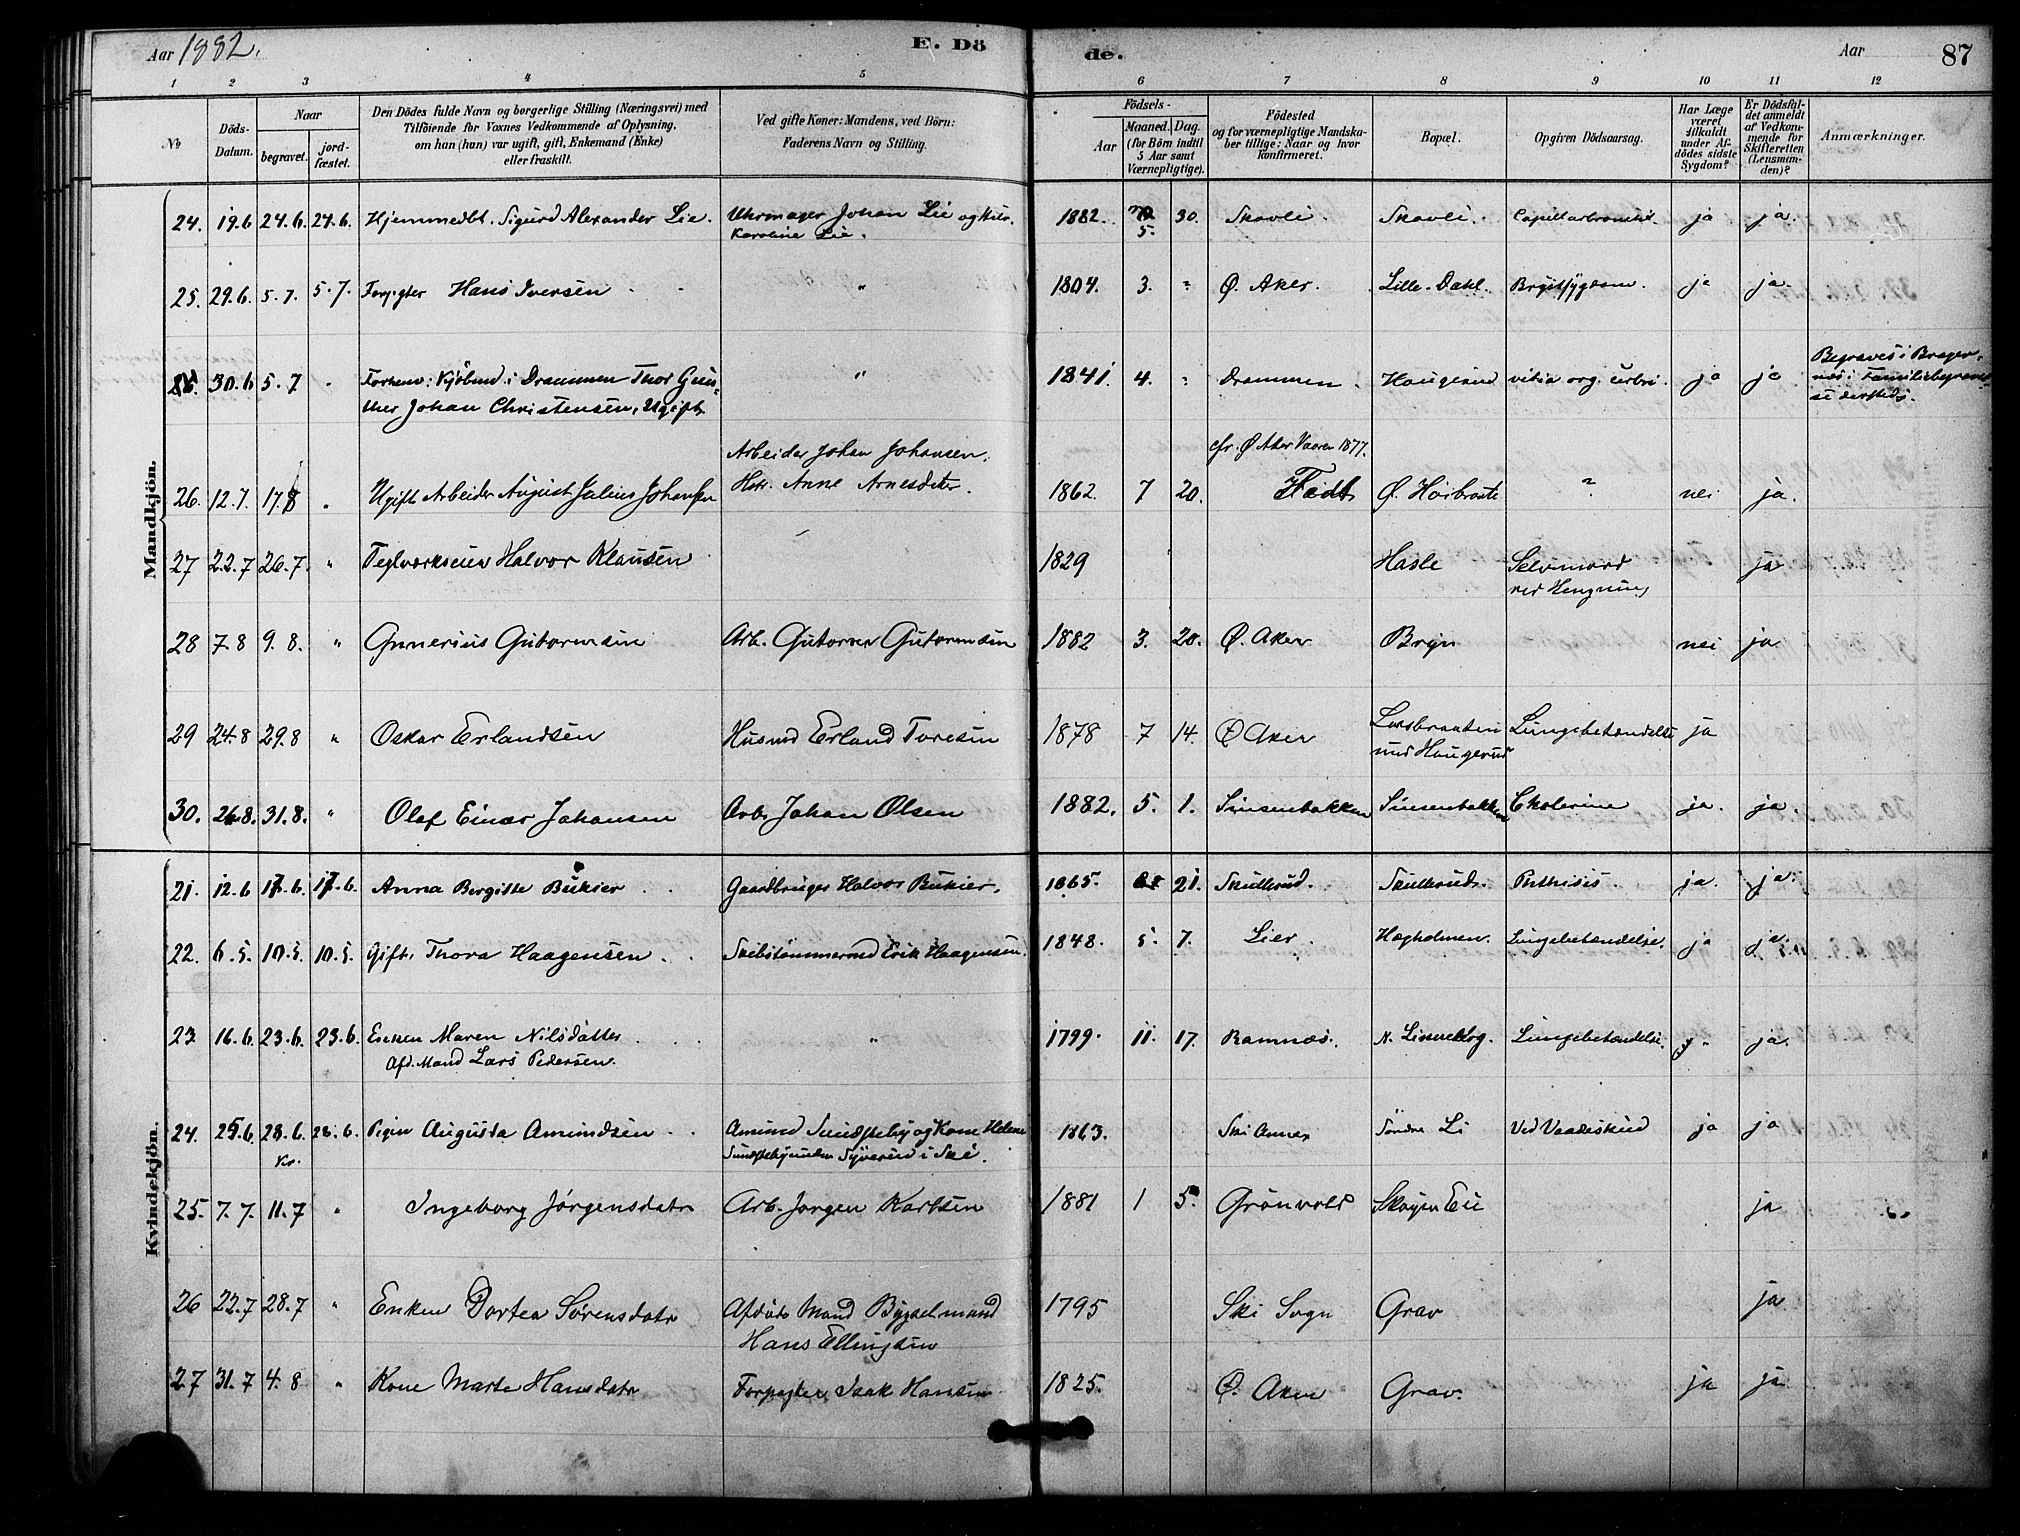 Aar 1882.
E. Dö
de.
Aar
87
1 2 3 4 5 6 7 8 9 10 11 12
No
Döds-Datum.
Naar
begravet.
jord-fæstet.
Den Dödes fulde Navn og borgerlige Stilling (Næringsvei) med
Tilföiende for Voxnes Vedkommende af Oplysning,
om han (hun) var ugift, gift, Enkemand (Enke)
eller fraskilt.
Ved gifte Koner: Mandens, ved Börn:
Faderens Navn og Stilling.
Födsels-
Aar
Maaned. Dag.
(for Börn indtil
5 Aar samt
Værnepligtige).
Födested
og for værnepligtige Mandska-
ber tillige: Naar og hvor
konfirmeret.
Bopæl.
Opgiven Dödsaarsag.
Har Læge
været
tilkaldt
under Af-
dödes sidste
Sygdom?
Er Dödsfal-
det anmeldt
af Vedkom-
mende for
Skifteretten
(Lensman-
den)?
Anmærkninger.
Mandkjön.
24. 19.6 24.6. 24.6. Hjemmedbt. Sigurd Alexander Lie. Uhrmager Johan Lie og Hustr. 1882. 30. Skovli. Skovli. Capillarbronchit. ja ja.
Karoline Lie. 5.
25. 29.6. 5.7. 5.7. Forpagter Hans Iversen " 1804. 3. " Ø. Aker. Lille-Dahl. Brystsygdom. ja ja.
Begraves i Brager-
25. 30.6 5.7 " Forhenv: Kjöbmd. i Drammen Thor Gun- " 1841. 4. " Drammen. Haugerud vitia org. ja ja næs i Familiebegravel-
ther Johan Christensen, Ugift se dersteds.
Arbeider Johan Johansen. cfr. Ø Aker Vaaren 1877.
26. 12.7. 17.8 " Ugift Arbeider August Julius Johansen Hstr. Anne Arnesdatter. 1862. 7 20. Fedt Ø. Höibraate ? nei ja.
27 22.7 26.7. " Teglværkseier Halvor Klausen 1829 Hasle Selvmord ja
ved Hengning
28 7.8 9.8. " Gunerius Gutormsen Arb. Gutorm Gutormsen 1882 3. 20. Ø. Aker Bryn nei ja
29 24.8 29.8 " Oskar Erlandsen Husmd Erland Toresen 1878 7 14. Ø Aker Lungebetændelse ja
und Haugerud
30. 26.8. 31.8. " Olaf Einar Johansen Arb. Johan Olsen 1882. 5. 1. Sinsenbakken Sinsenbakken Cholerine ja. ja
Kvindekjön.
21. 12.6 17.6. 17.6. Anna Bergitte Bukier Gaardbruger Halvor Bukier. 1865. 21. Skullerud. Skullerud. Phthisis. ja. ja.
22. 6.5. 10.5. 10.5. Gift. Thora Haagensen Skibstömmermd Erik Haagensen. 1848. 5. 7. Lier. Hægholmen. Lungebetændelse. ja ja.
23. 16.6. 23.6. 23.6. Enken Maren Nilsdatter " 1799. 11. 17. Ramnæs. N. Limeklog. Lungebetændelse. ja.
Afd. Mand Lars Pedersen.
24. 25.6. 28.6. 28.6. Pigen Augusta Amundsen Amund og Kone Helene 1863. Ski Annex Söndre Li Ved Vaadeskud ja ja
i Ski.
25. 7.7. 11.7 " Ingeborg Jørgensdatr Arb. Jørgen Karlsen 1881 1 5. Grönvold Skøyen Eie ja
26 22.7 28.7 " Enken Dortea Sørensdatr Afdøde Mand Bygselmand 1795 Ski Sogn Grav ja
Hans Ellingsen
27 31.7 4.8 " Kone Marte Hansdatr Forpagter Isak Hansen 1825. Ø. Aker Grav. ja ja